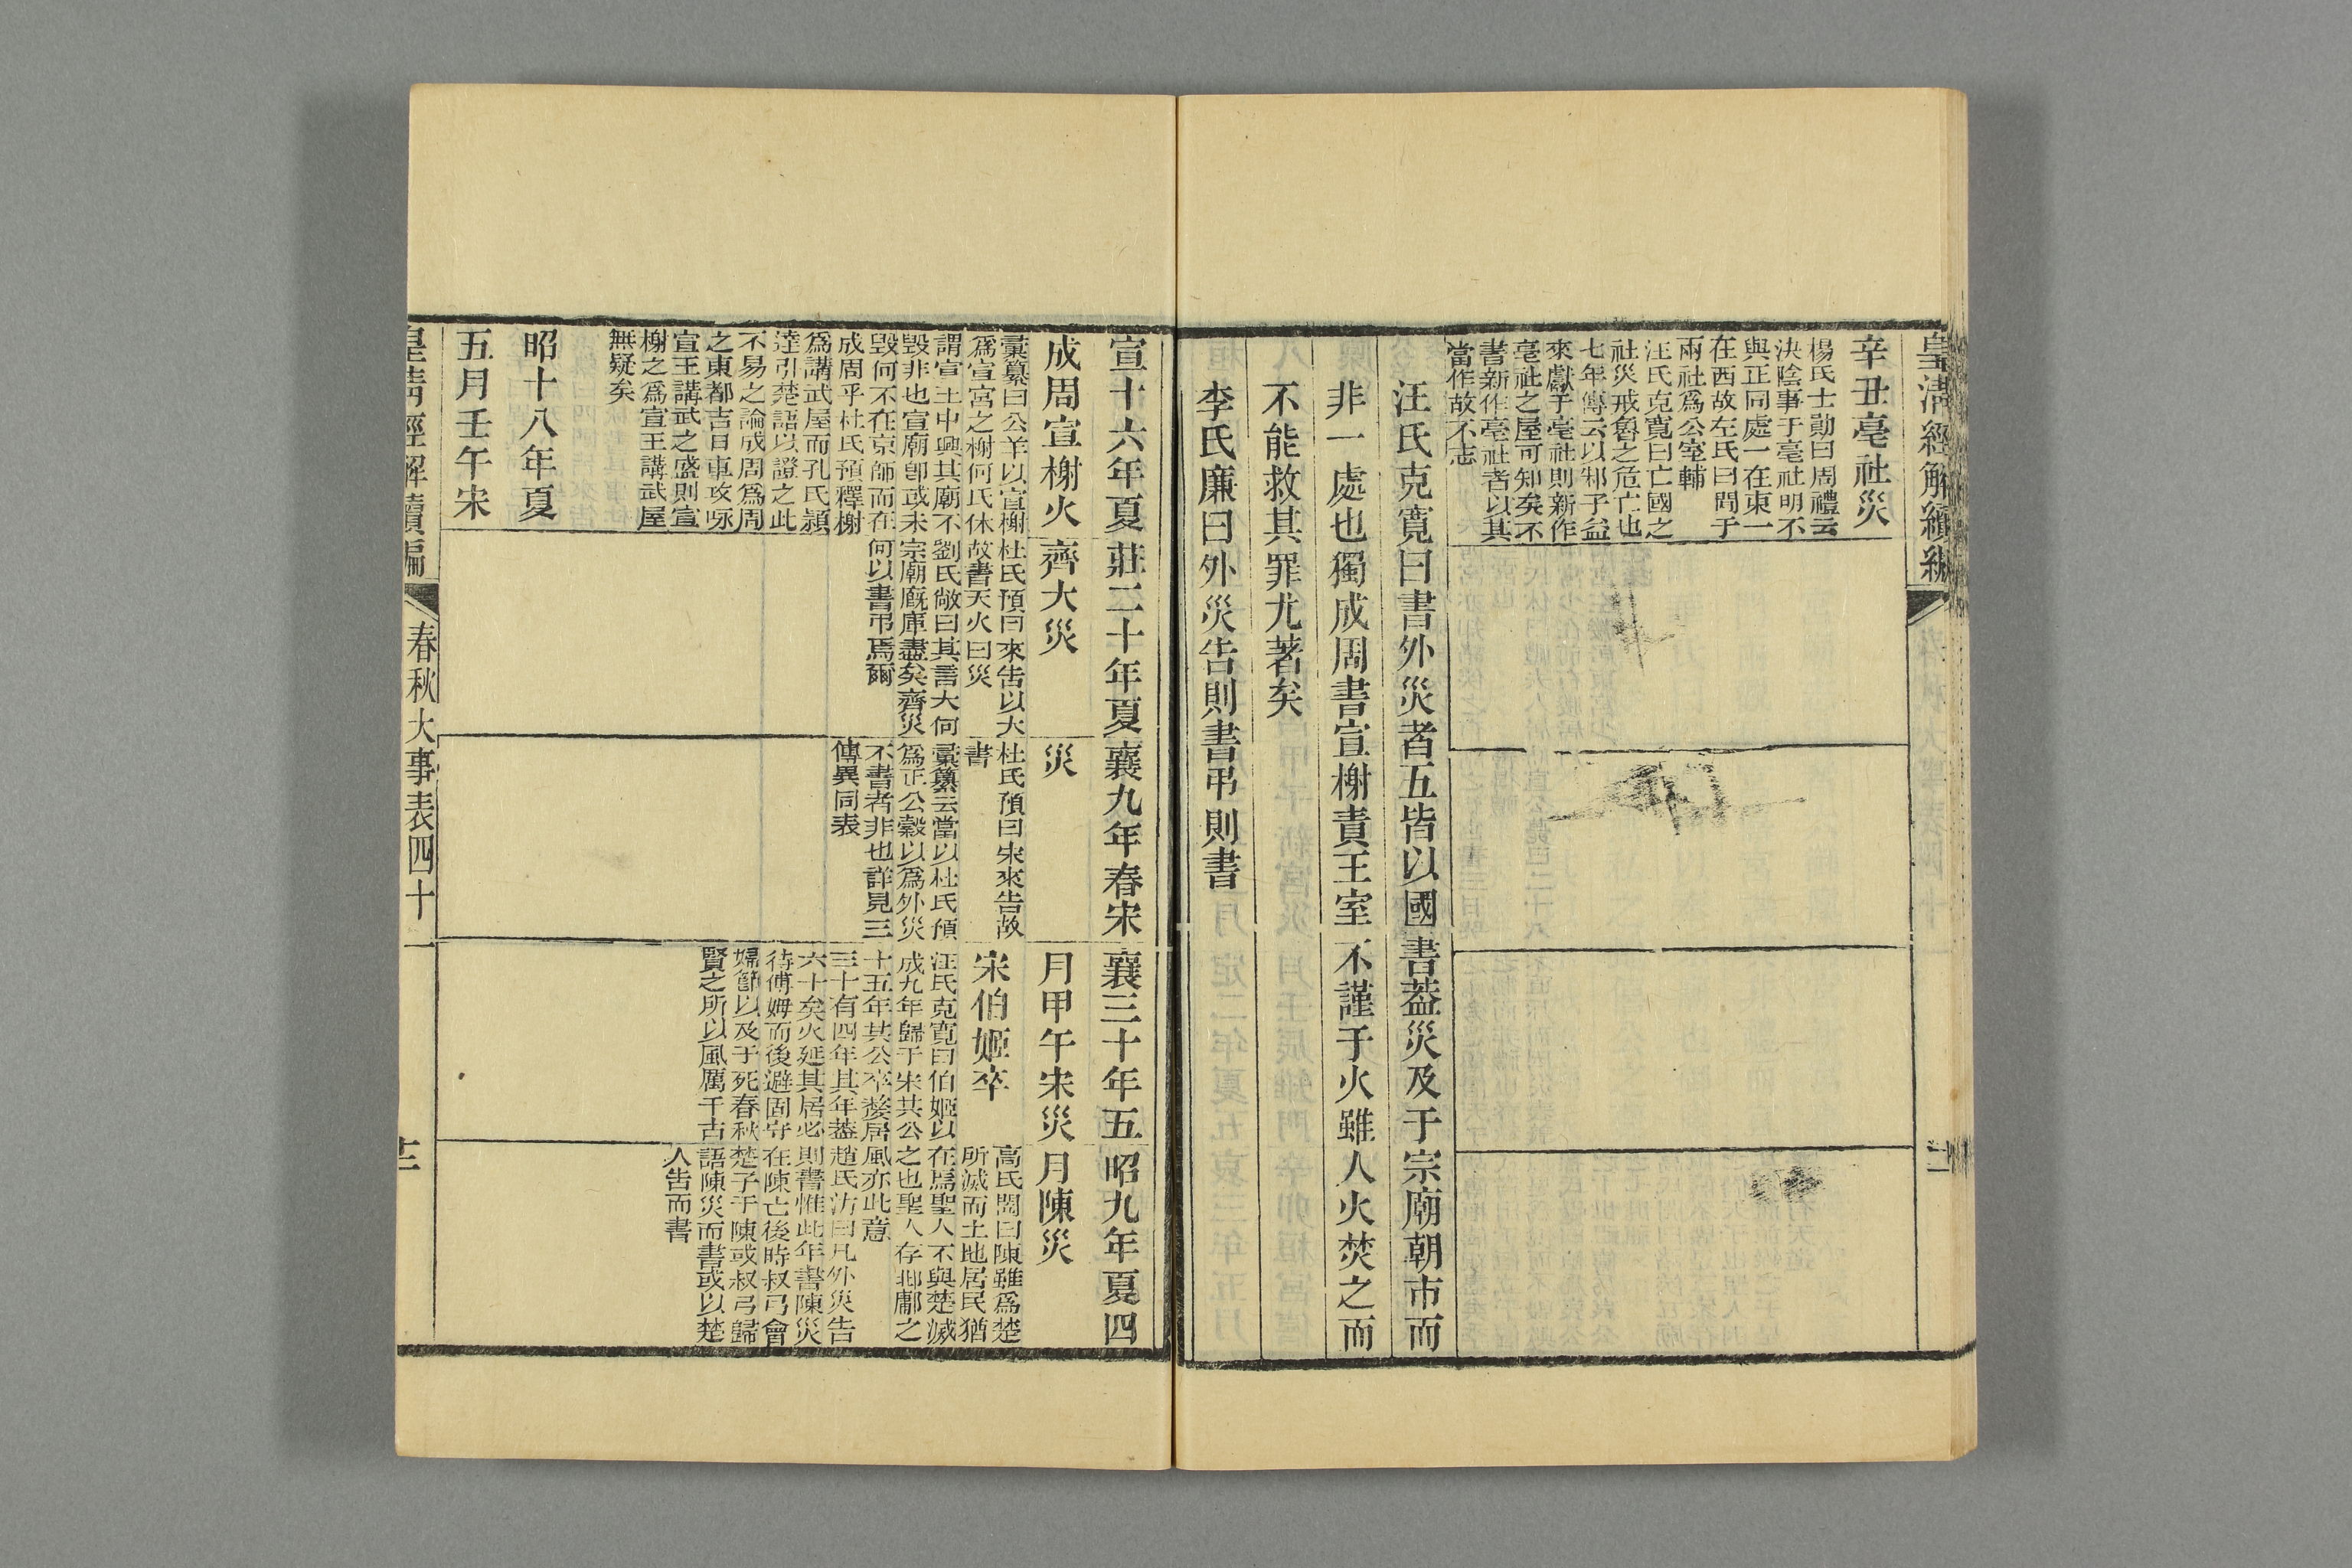 皇淸經解續編
辛丑亳社災
楊氏士勛曰周禮云
決陰事于亳社明不
與正同處一在東一
在西故左氏曰閒于
兩社爲公室輔
汪氏克寬曰亡國之
社災戒魯之危亡也
七年傳云以邾子益
來獻于亳社則新作
亳社之屋可知矣不
書新作亳社者以其
當作故不志
汪氏克寬曰書外災者五皆以國書葢災及于宗廟朝市而
非一處也獨成周書宣榭責王室不謹于火雖人火焚之而
不能救其罪尤著矣
李氏廉曰外災告則書弔則書
宣十六年夏
成周宣榭火
彙纂曰公羊以宣榭
爲宣宮之榭何氏休
謂宣王中興其廟不
毀非也宣廟卽或未
毀何不在京師而在
成周乎杜氏預釋榭
爲講武屋而孔氏穎
達引楚語以證之此
不易之論成周爲周
之東都吉日車攻咏
宣王講武之盛則宣
榭之爲宣王講武屋
無疑矣
莊二十年夏
齊大災
杜氏預曰來告以大
故書天火曰災
劉氏敞曰其言大何
宗廟廐庫盡矣齊災
何以書弔焉爾
襄九年春宋
災
杜氏預曰宋來告故
書
彙纂云當以杜氏預
爲正公穀以爲外災
不書者非也詳見三
傳異同表
襄三十年五
月甲午宋災
宋伯姬卒
汪氏克寬曰伯姬以
成九年歸于宋共公
十五年其公卒嫠居
三十有四年其年葢
六十矣火延其居必
待傅姆而後避固守
婦節以及于死春秋
賢之所以風厲千古
昭九年夏四
月陳災
高氏閌曰陳雖爲楚
所滅而土地居民猶
在焉聖人不與楚滅
之也聖人存邶鄘之
風亦此意
趙氏汸曰凡外災告
則書惟此年書陳災
在陳亡後時叔弓會
楚子于陳或叔弓歸
語陳災而書或以楚
人告而書
昭十八年夏
五月壬午宋
皇淸經解續編
春秋大事表四十一
十二